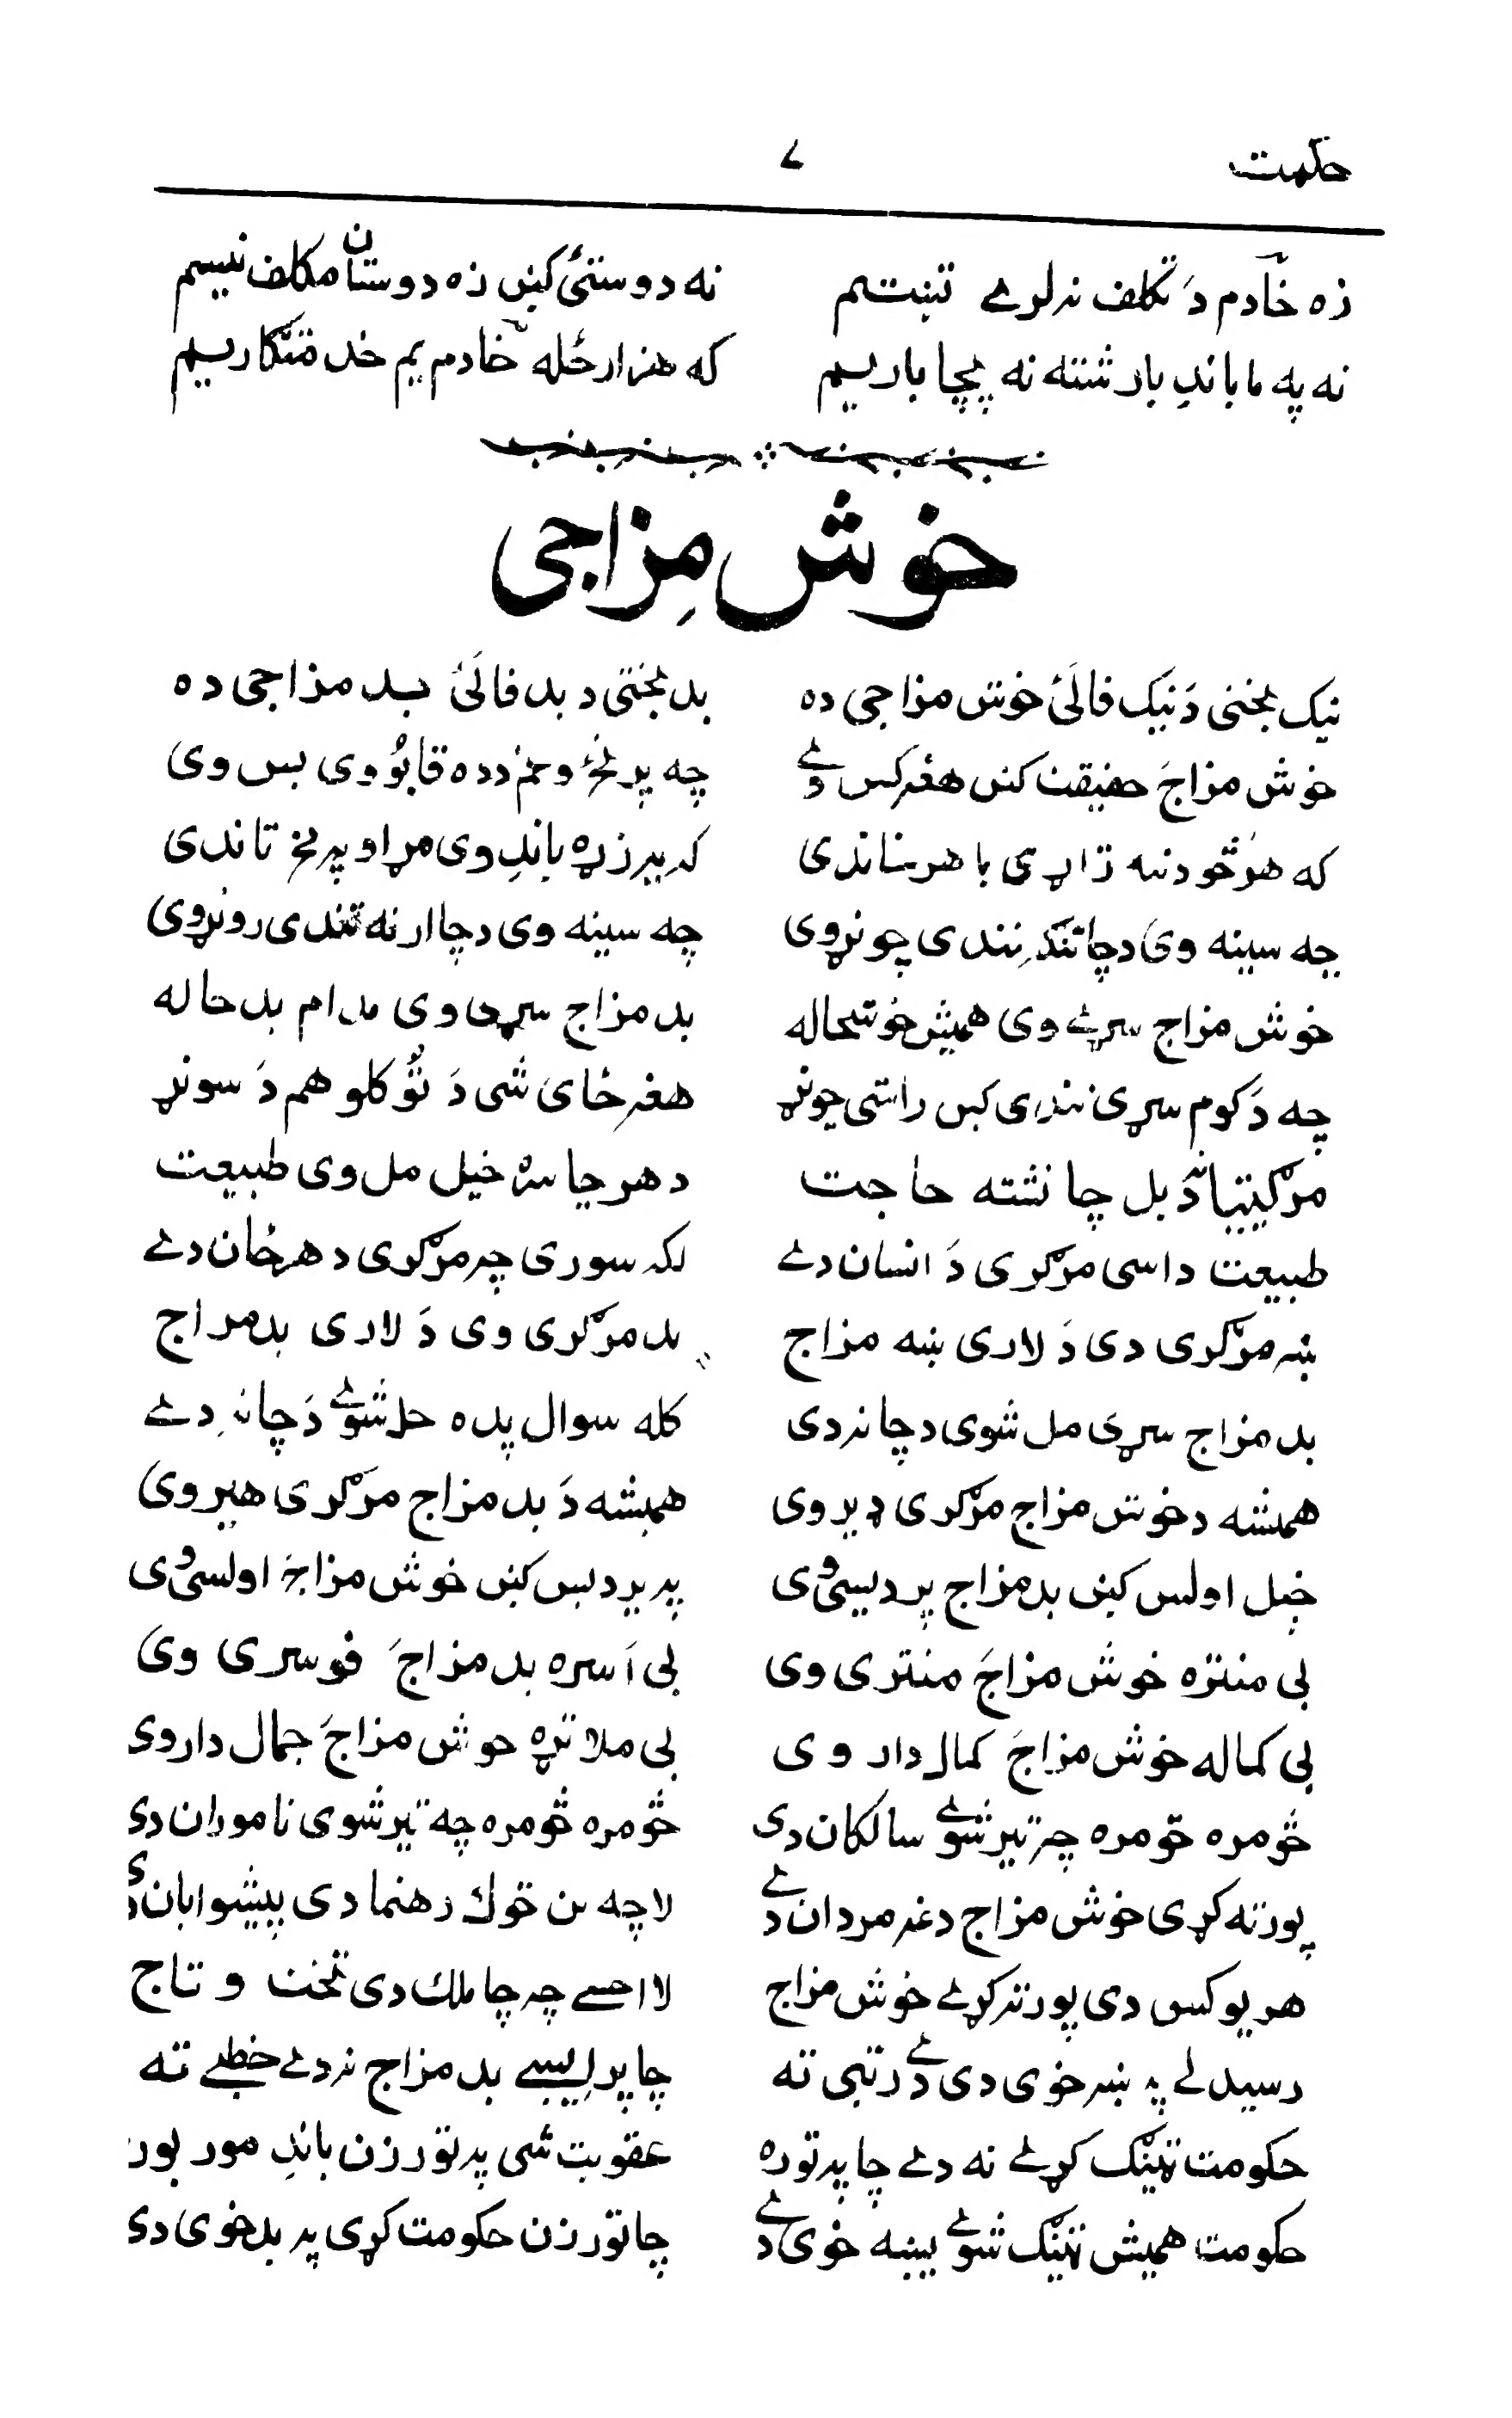 حکمت ۷
زه خادم دَ تکلف نه لرے تښتم نه دوستئ کښ زه دوستان مکلف نیسم
نه په ما باندِ بار شته نه په چا باریم که هزار ځله خادم یم خدمتګار یم
خوش مِزاجی
نیک بختی دَ نیک فالئ خوش مزاجی ده بدبختی د بد فالئ بد مزاجی ده
خوش مزاجَ حقیقت کښ هغه کس دے چه پر خ وخم دده قابو وی بس وی
که هر څو دننه ژاړی باهر خاندی که یر زړه باندِ وی مړاو په مخ تاندی
چه سینه وی دچا تنګه نندی چونړوی چه سینه وی دچا ارنه تندی رونړوی
خوش مزاج سړے وی همیش خوشحاله بد مزاج سړے وی مدام بد حاله
چه دَ کوم سړی تندی کښ راشی چونړ هغه ځای شی دَ ټوکلو هم دَ سونړ
مرګتیا دَ بل چا نشته حاجت د هر چا سره خپل مل وی طبیعت
طبیعت داسی مرګری دَ انسان دے لکه سوری چه مرګری د هر ځان دے
ښه مرګری دی دَ لاری ښه مزاج بد مرګری وی دَ لاری بدمزاج
بد مزاج سړی مل شوی دچا نه دی کله سوال پده حل شوے دَ چا نه دے
همیشه د خوش مزاج مرګری ډیر وی همیشه دَ بد مزاج مرګری هیر وی
خپل اولس کښ بدمزاج پردیسی وی په پردیس کښ خوش مزاجَ اولسی وی
بی منتره خوش مزاجَ منتری وی بی اَسره بد مزاجَ فوسری وی
بی کماله خوش مزاجَ کمال دار وی بی ملاتړه خوش مزاجَ جمال دار وی
څومره څومره چه تیر شوے سالکان دی څومره څومره چه تیر شوی ناموران دی
پورته کړی خوش مزاج دغه مردان دے لا چه نن څوک رهنما دی پیشوایان دی
هر یو کس دی پورته کړے خوش مزاج لا احسے چه چا ملک دی تخت و تاج
رسیدلے په ښه خوی دی دے رتبی ته چا پرایسے بد مزاج نه دے خطے ته
حکومت ټینګ کړے نه دے چا په توره عقوبت شی په تورزن باندِ مور بوره
حکومت همیش ټینګ شوے پښه خوی دے چا تورزن حکومت کړی په بدخوی دی